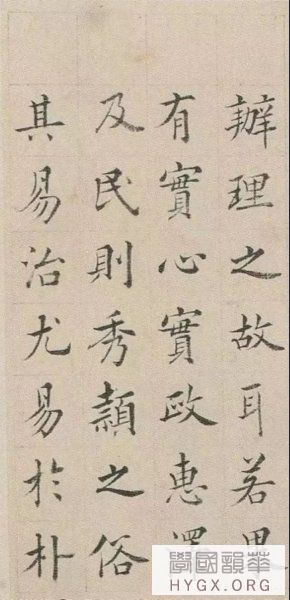 辦理之故耳若果
有實心實政惠澤
及民則秀穎之俗
其易治尤易於朴
華韻國學
HYGX.ORG